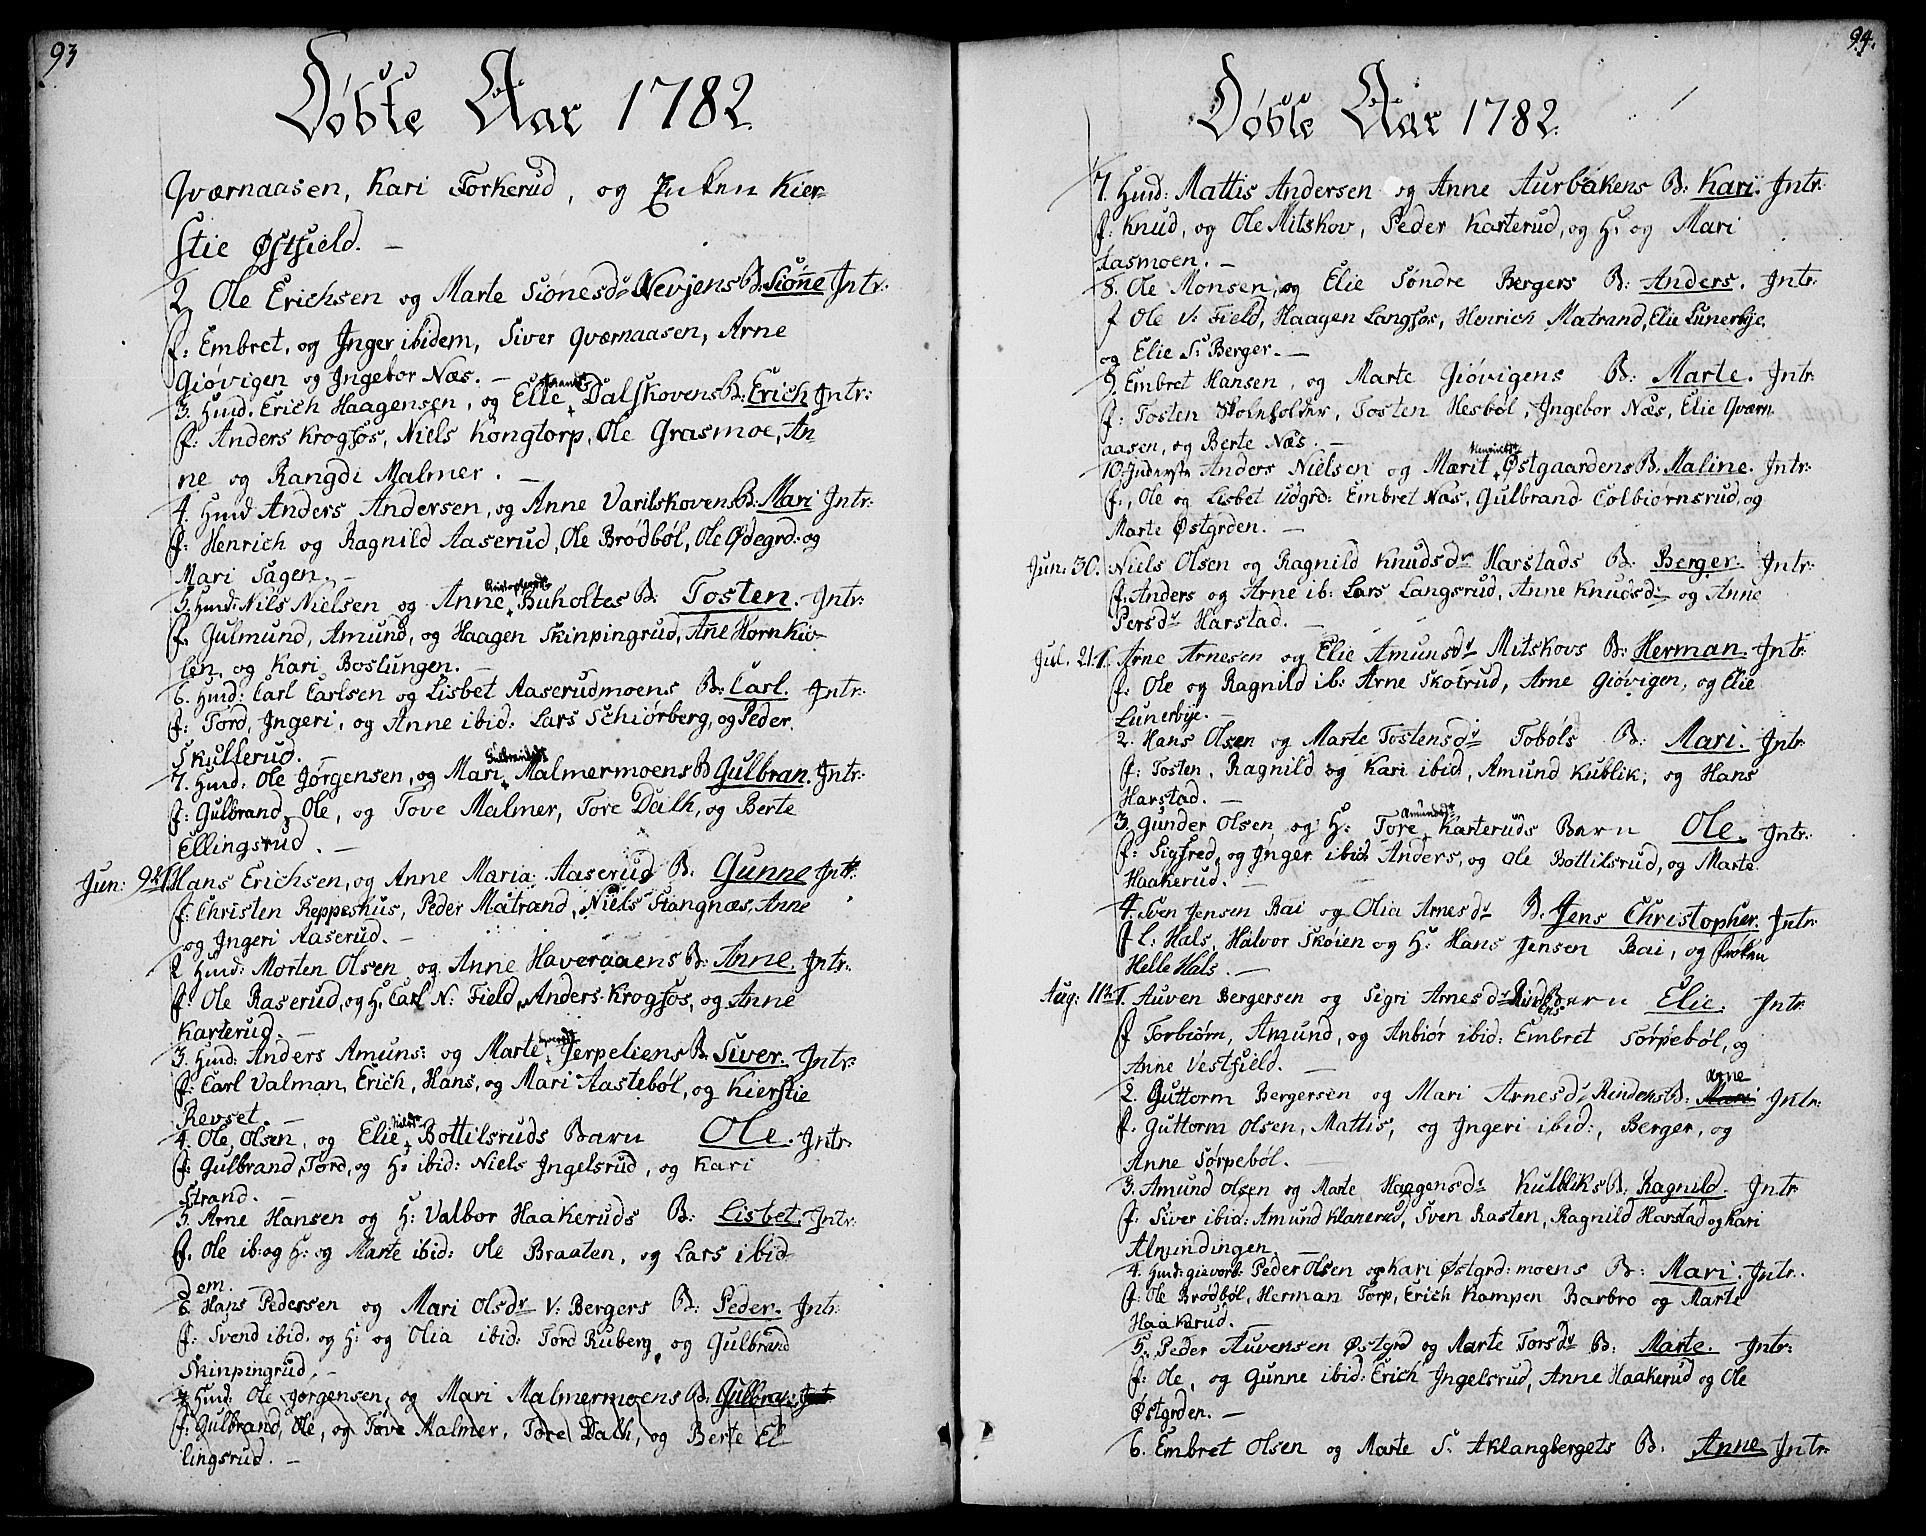 93
Døbte Aar 1782.
Qværnaasen, Kari Torkerud, og Enken Kier-
stie Østfield. —
2 Ole Erichsen og Marte Siønesdr Nevjens B: Siøne Intr:
f: Embret, og Inger ibidem, Siver Qværnaasen, Arne
Giøvigen og Ingebor Næs. —
3. Hmd. Erich Haagensen, og Elle Dalskovens B: Erich Intr:
f: Anders Krogfos, Niels Kongtorp, Ole Grasmoe, An-
ne og Rangdi Malmer. —
4. Hmd Anders Andersen, og Anne Varilskovens B: Mari Intr:
f: Henrich og Ragnild Aaserud, Ole Brødbøl, Ole Ødegrd: og
Mari Sagen. —
5. Hmd: Nils Nielsen og Anne Buholtes B: Tosten. Intr:
f. Julmund, Amund, og Haagen Skinpingrud, Ane Hornkiv-
len, og Kari Boslungen. —
6. Hmd: Carl Carlsen og Lisbet Aaserudmoens B: Carl. Intr:
f: Tord, Ingeri, og Anne ibid: Lars Schiørberg, og Peder
Skulferud. —
7. Hmd. Ole Jørgensen, og Mari Gulbrandsdr Malmermoens B Gulbran. Intr:
f: Gulbrand, Ole, og Tove Malmer, Tore Dalh, og Berte
Ellingsrud. —
Jun: 9 1. Hans Erichsen, og Anne Maria Aaserud B: Gunne Intr.
f: Christen Reppeshus, Peder Matrand, Niels Stangnæs, Anne
og Ingeri Aaserud. —
2 Hmd: Morten Olsen og Anne Haveraaens B: Anne. Intr:
f: Ole Raserud, og H. Carl N: Field, Anders Krogfos, og Anne
Karterud. —
3. Hmd: Anders Amuns: og Marte Jerpeliens B. Siver. Intr:
f: Carl Valman, Erich, Hans, og Mari Aastebøl, og Kierstie
Revset. —
4. Ole Olsen, og Elie Nielsdr Bottilsruds Barn Ole. Intr:
f: Gulbrand, Tord, og H: ibid: Niels Ingelsrud, og Kari
Strand. —
5. Arne Hansen og H: Valbor Haakeruds B: Lisbet. Intr:
f. Ole ib: og H: og Marte ibid: Ole Braaten, og Lars ibid-
dem.
6. Hans Pedersen og Mari Olsdr V: Bergers B: Peder. Intr:
f: Svend ibid: og H: og Olia ibid: Tord Ruberg, og Gulbrand
Skinpingrud. —
7 Hmd: Ole Jørgensen, og Mari Malmermoens B: Gulbran: Intr
f: Gulbrand, Ole, og Tove Malmer, Tore Dalh, og Berte El-
lingsrud. —
94.
Døbte Aar 1782.
7. Hmd: Mattis Andersen og Anne Aurbakens B: Kari. Intr:
f: Knud, og Ole Mitskov, Peder Karterud, og H: og Mari
Aasmoen. —
8. Ole Monsen, og Elie Søndre Bergers B: Anders. Intr:
f Ole V: Field, Haagen Langfos, Henrich Matrand, Elie Lunerbye
og Elie S: Berger. —
9. Embret Hansen, og Marte Giøvigens B: Marte. Intr:
f: Tosten Skoleholder, Tosten Hesbøl, Ingebor Næs, Elie Qværn-
aasen, og Berte Næs. —
10. Inderste Anders Nielsen og Mærit Østgaardens B: Maline. Intr:
f., Ole og Lisbet Udgrd: Embret Næs, Gulbrand Colbiørnsrud, og
Marte Østgrden. —
Jun: 30. Niels Olsen og Ragnild Knudsdr Harstads B: Berger. Intr:
f. Anders og Arne ib: Lars Langsrud, Anne Knudsdr og Anne
Persdr Harstad. —
Jul. 21. 1. Arne Arnesen og Elie Amunsdr Mitskovs B: Herman. Intr:
f: Ole og Ragnild ib: Arne Skotrud, Arne Giøvigen, og Elie
Lunerbye. —
2. Hans Olsen og Marte Tostensdr Tobøls B: Mari. Intr:
f: Tosten, Ragnild og Kari ibid, Amund Kublik, og Hans
Harstad. —
3. Gunder Olsen og H: Tore Amundsdr Karteruds Barn Ole. Intr:
f: Sigfred, og Inger ibid: Anders, og Ole Bottilsrud, og Marte
Haakerud. —
4. Sven Jensen Bai og Olia Arnesdr B. Jens Christopher. Intr:
f L: Hals, Halvor Skøien og H: Hans Jensen Bai, og frøken
Helle Hals. —
Aug: 11. 1. Auven Bergersen og Sigri Arnesdr Rindens Barn Elie. Intr:
f Torbiørn, Amund, og Anbiør ibid: Embret Sørpebøl, og
Anne Vestfield. —
2. Guttorm Bergersen og Mari Arnesdr Rindens B: Mari Arne Intr:
f. Guttorm Olsen, Mattis, og Ingeri ibid:, Berger, og
Anne Sørpebøl. —
3. Amund Olsen og Marte Haagensdr Kulbliks B: Ragnild. Intr
f. Siver ibid: Amund Klanerud, Sven Rasten, Ragnild Harstad og Kari
Almundingen. —
4. Hmd: gievorb: Peder Olsen og Kari Østgrd: moens B: Mari. Intr.
f: Ole Brødbøl, Herman Torp, Erich Kampen Barbro og Marte
Haakerud. —
5. Peder Auvensen Østgrd og Marte Torsdr B: Marte. Intr:
f: Ole, og Gunne ibid: Erich Ingelsrud, Anne Haakerud og Ole
Østgrden. —
6. Embret Olsen og Marte S: Aklangbergets B: Anne Intr: